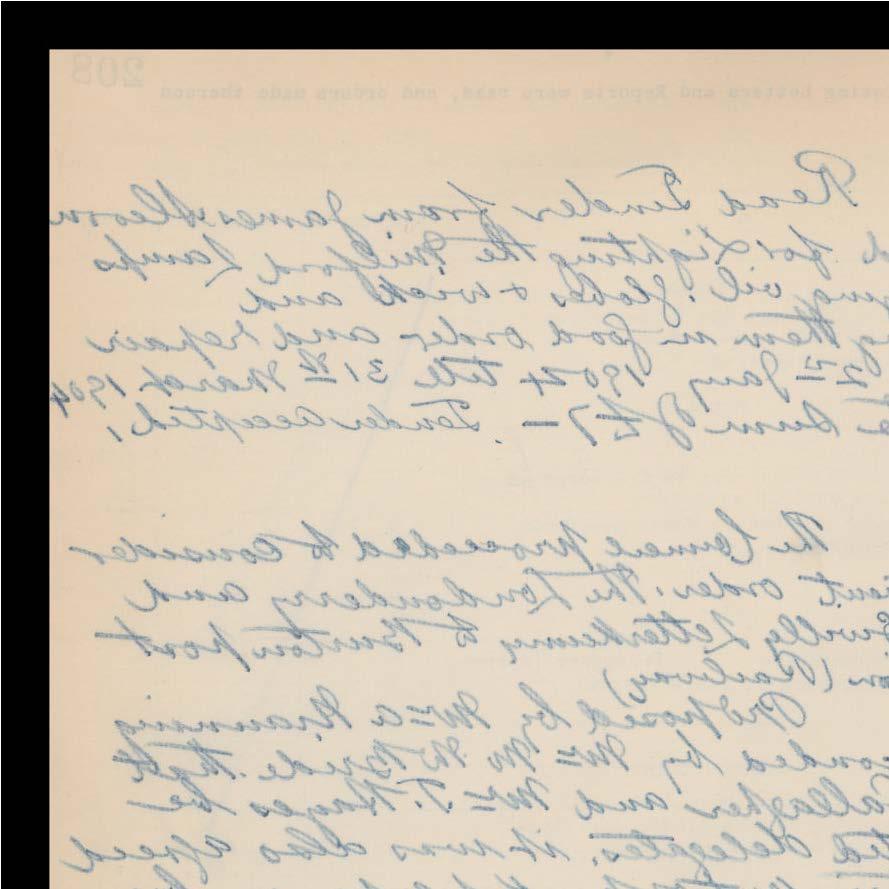 208
Letters and Reports were read, and orders made thereon
Read Tender from James
for Lighting the Milford Lamps
oil, globes & wick and
them in good order and repair
2nd Jany 1904 till 31st March 1904
sum of £7 — Tender accepted,
The Council proceeded to consider
order: the Londonderry and
Swilly Letterkenny to Burtonport
(Railway)
Proposed by Mr A Manning
by Mr M McBride. That
Gallagher and Mr T. Hayes be
delegates, it was also agreed